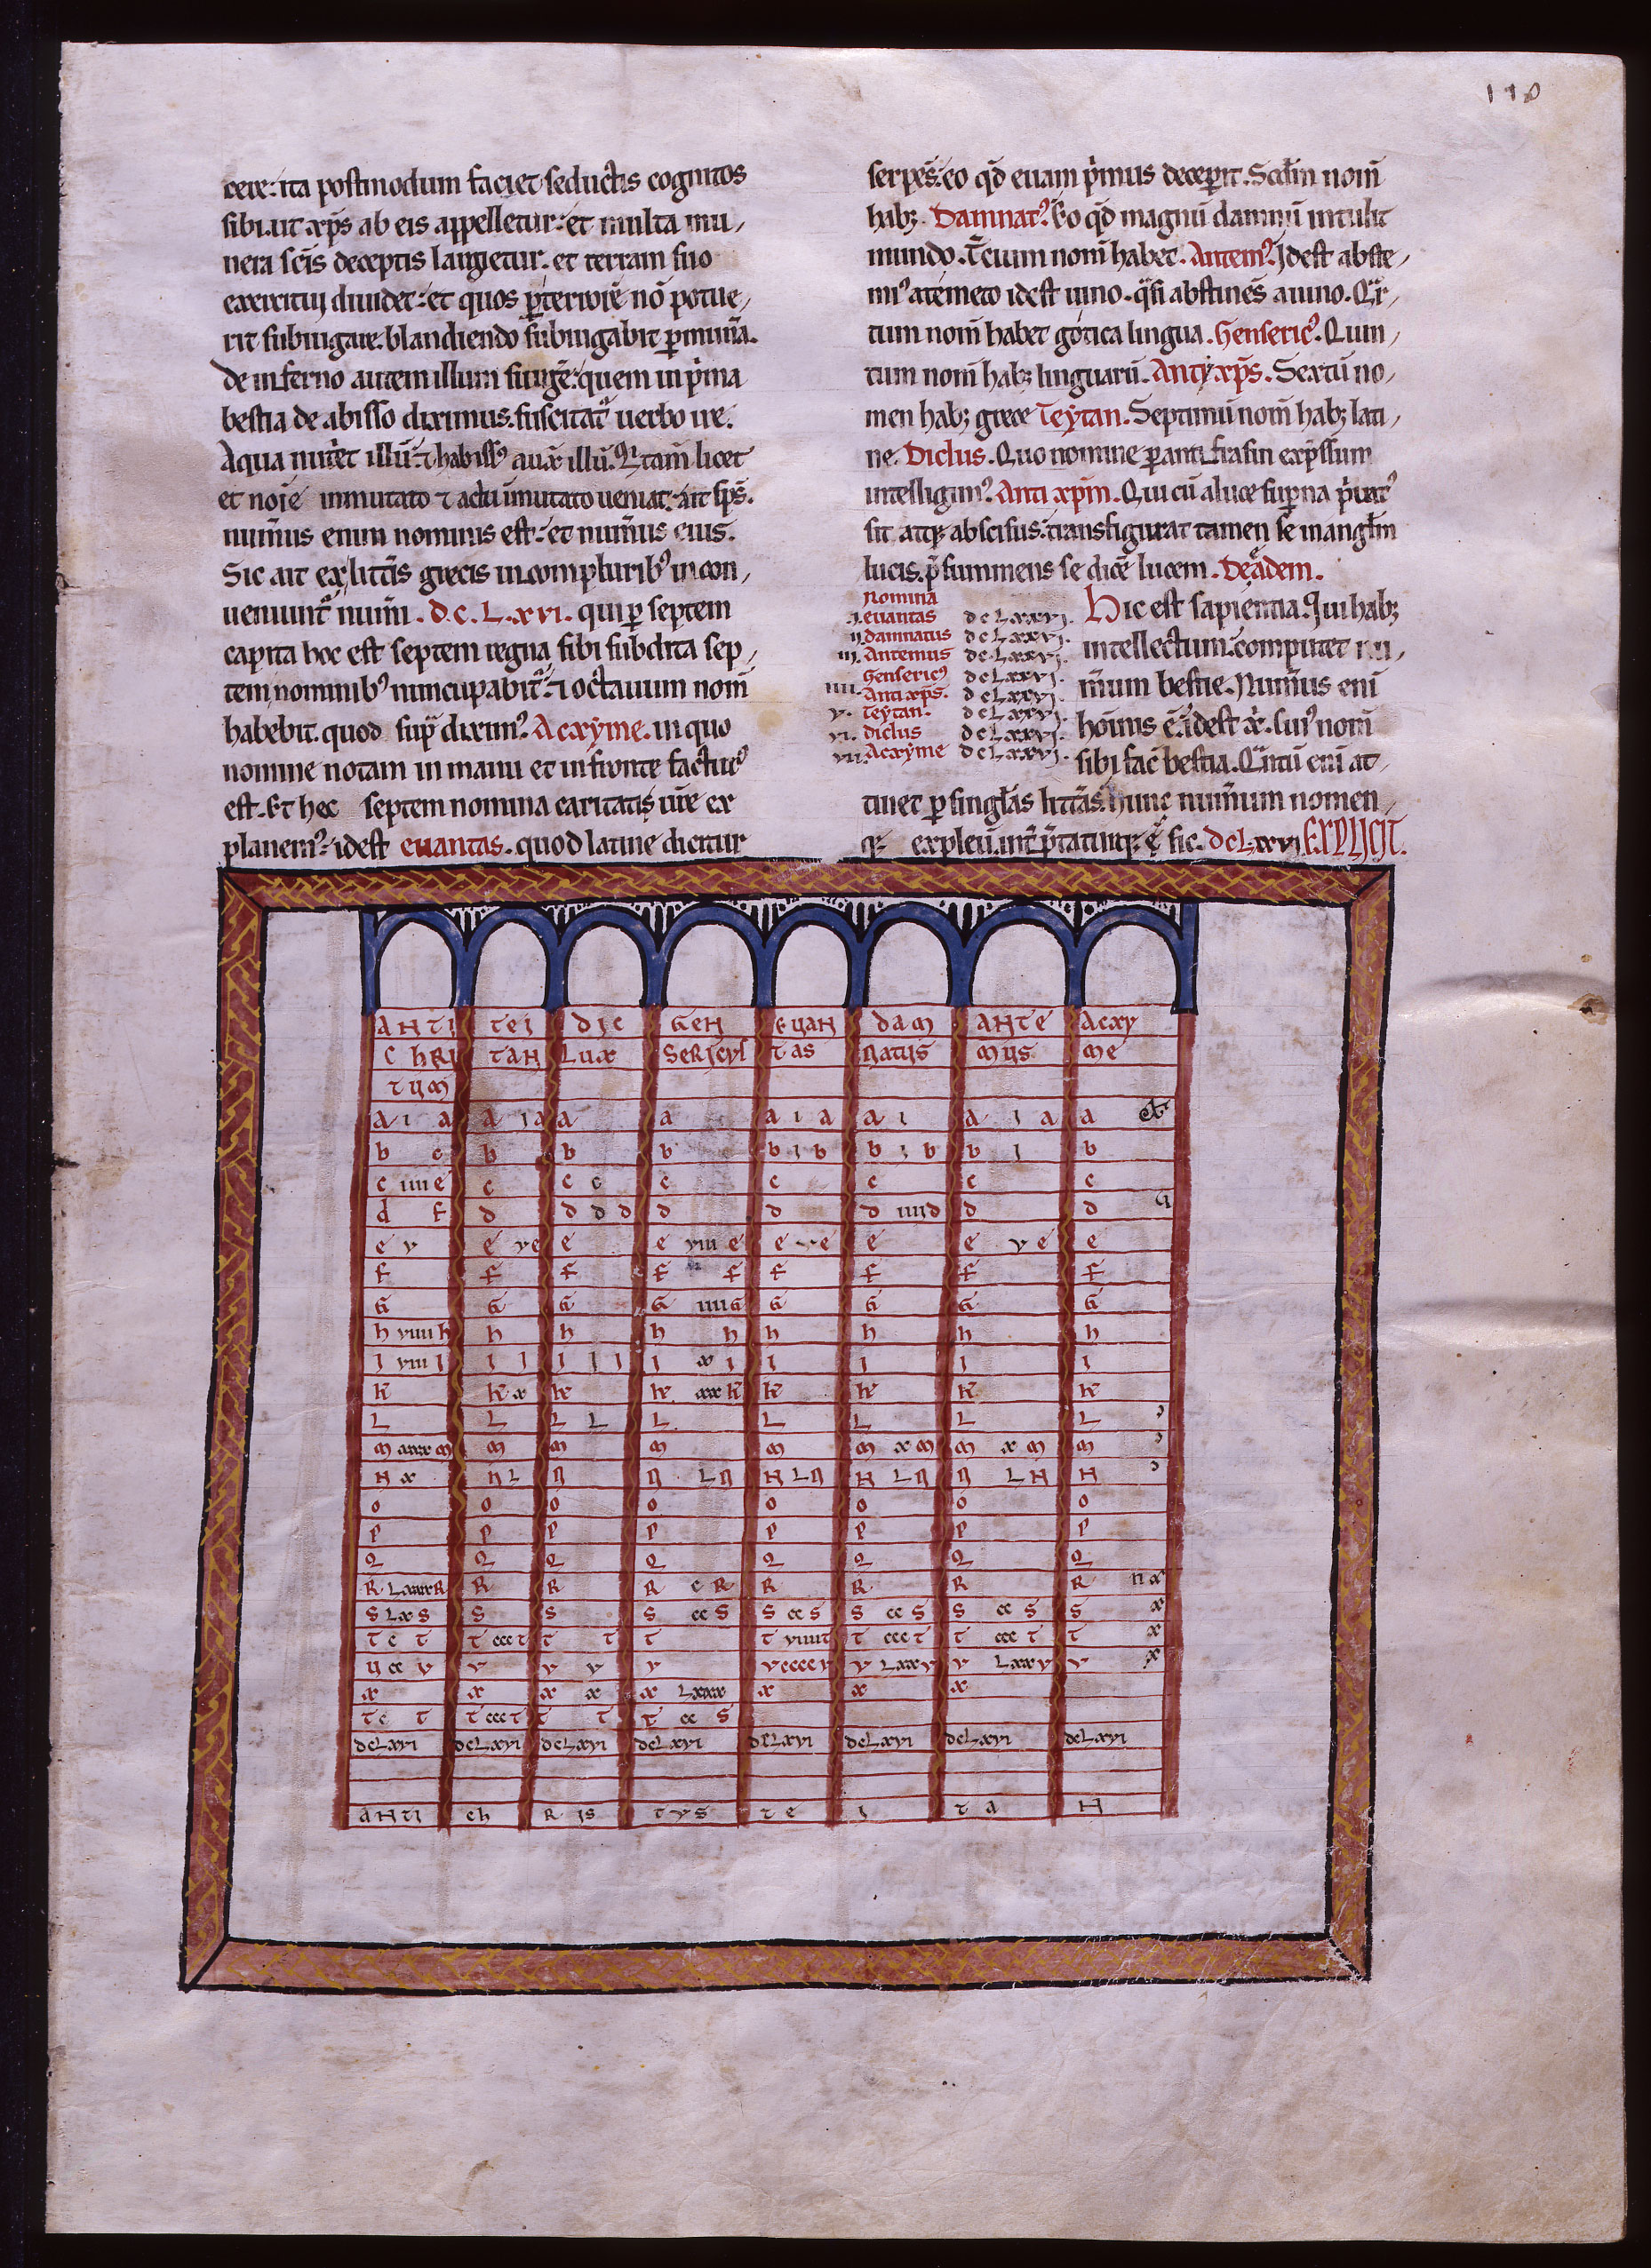 110
cere: ita postmodum faciet seductis cognitos
sibi. ut xp̄s ab eis appelletur: et multa mu,
nera sc̄is deceptis largietur. et terram suo
exercitui diuidet: et quos p terrorē nō potue,
rit subiugare. blandiendo subiugabit p munā.
de inferno autem illum surgē: quem in p̍ma
bestia de abisso diximus. suscitat̉
Aqua nut̍et illū
et noīe inmutato ⁊ inmutato ueniat. ait sp̄s.
num̄us enim nominis est: et num̄us eius.
Sic ait ex litt̄is grecis in compluribꝰ incon,
ueniunt̉ num̄ .d.c.L.xvi. qui p septem
capita hoc est septem regna sibi subdita sep,
tem nominibꝰ nuncupabit̉: ⁊ octauum nom̄
habebit. quod sup̄ diximꝰ. Acxyme. in quo
nomine notam in manu et in fronte facturꝰ
est. Et hec septem nomina caritatis ur̄e ex
planemꝰ: idest euantas. quod latine dicitur
serpēs: eo qđ euam p̍mus decepit. Scdm nom̄
habꝫ. Damnatꝰ. Eo qđ magnū damnū intulit
mundo. t̄cium nom̄ habet. Antemꝰ. Idest abste,
miꝰ a temeto idest uino. q̄si abstinēs a uino. Qr̄,
tum nom̄ habet gotica lingua. Gensericꝰ. Quin,
tum nom̄ habꝫ linguarū. Antyxp̄s. Sextū no,
men habꝫ grece Teytan. Septimū nom̄ habꝫ lati,
ne. Diclus. Quo nomine p antifrasin exp̄ssum
intelligimꝰ. Anti xp̄m. Qui cū a luce sup̄na p̍uatꝰ
sit atqꝫ abscisus: transfigurat tamen se in anglm̄
lucis. p̄summens se dicē lucem. De eadem.
Nomina
.i. euantas dcLxxvi.
ii. damnatus dcLxxvi.
iii. Antemus dcLxxvi.
Gensericꝰ dcLxxvi.
iiii. Anti xp̄s. dcLxxvi.
v. Teytan. dcLxxvi.
vi. diclus dcLxxvi.
vii. Acxyme dcLxxvi.
Hic est sapientia. Qui habꝫ
intellectum: computet nu,
m̄um bestie. Num̄us eni
hoīnis ē: idest xp̄i. cuiꝰ nom̄
sibi fac̄ bestia. Q̄ntū eni at,
tinet p singlas litt̄as: hunc num̄um nomen,
qꝫ expleū. int̄p̄tatūqꝫ ē sic. dcLxvi EXPLICIT.
ANTI TEI DIC GEN EUAN DAM ANTE ACXY
CHRI TAN LUX SERICUS TAS NATUS MUS ME
TUM
a i a a i a a a a i a a i a i a a
b c b b b b i b b i b b i b
c iiii e c c c c c c c c
d f d d d d d d d iiii d d d
e v e v e e e viii e e v e e e v e e
f f f f f f f f f
G G G G iiii G G G G G
h viiii h h h h h h h h h
i viiii i i i i i i i x i i i i i
k k x k k xx k k k k k
L L L L L L L L L
m xxxx m m m m m m x m m x m m
N x N L N N L N N L N N L N N L N N
o o o o o o o o
p p p p p p p p
Q Q Q Q Q Q Q Q
R Lxxxx R R R R c R R R R R
S Lx S S S S cc S S cc S S cc S S cc S S x
T c T T ccc T T T T T viiii T T ccc T T ccc T T x
U cc v v v v v v cccc v v Lxxx v v Lxxx v v x
x x x x x Lxxx x x x
T c T T ccc T T T T cc S
dcLxvi dcLxvi dcLxvi dcLxvi dcLxvi dcLxvi dcLxvi dcLxvi
ANTI ch R is tvs te i ta N